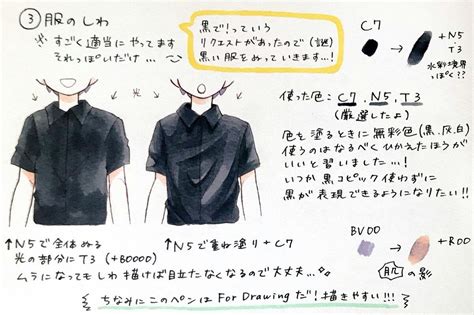 ③服のしわ
すごく適当にやってます
それっぽいだけ…
黒で!っていう
リクエストがあったので(謎)
黒い服をぬっていきます…!
C7
+N5
・T3
水彩境界
っぽく??
光
光
使った色: C7、N5、T3
(厳選したよ)
色を塗るときに無彩色(黒、灰、白)
使うのはなるべくひかえたほうが
いいと習いました…!
いつか黒コピック使わずに
黒が表現できるようになりたい!!
↑N5で全体ぬる
光の部分にT3(+B0000)
↑N5で重ね塗り+C7
ムラになってもしわ描けば目立たなくなるので大丈夫…
BV00
+R00
肌の影
ちなみにこのペンはFor Drawingだ!描きやすい!!!